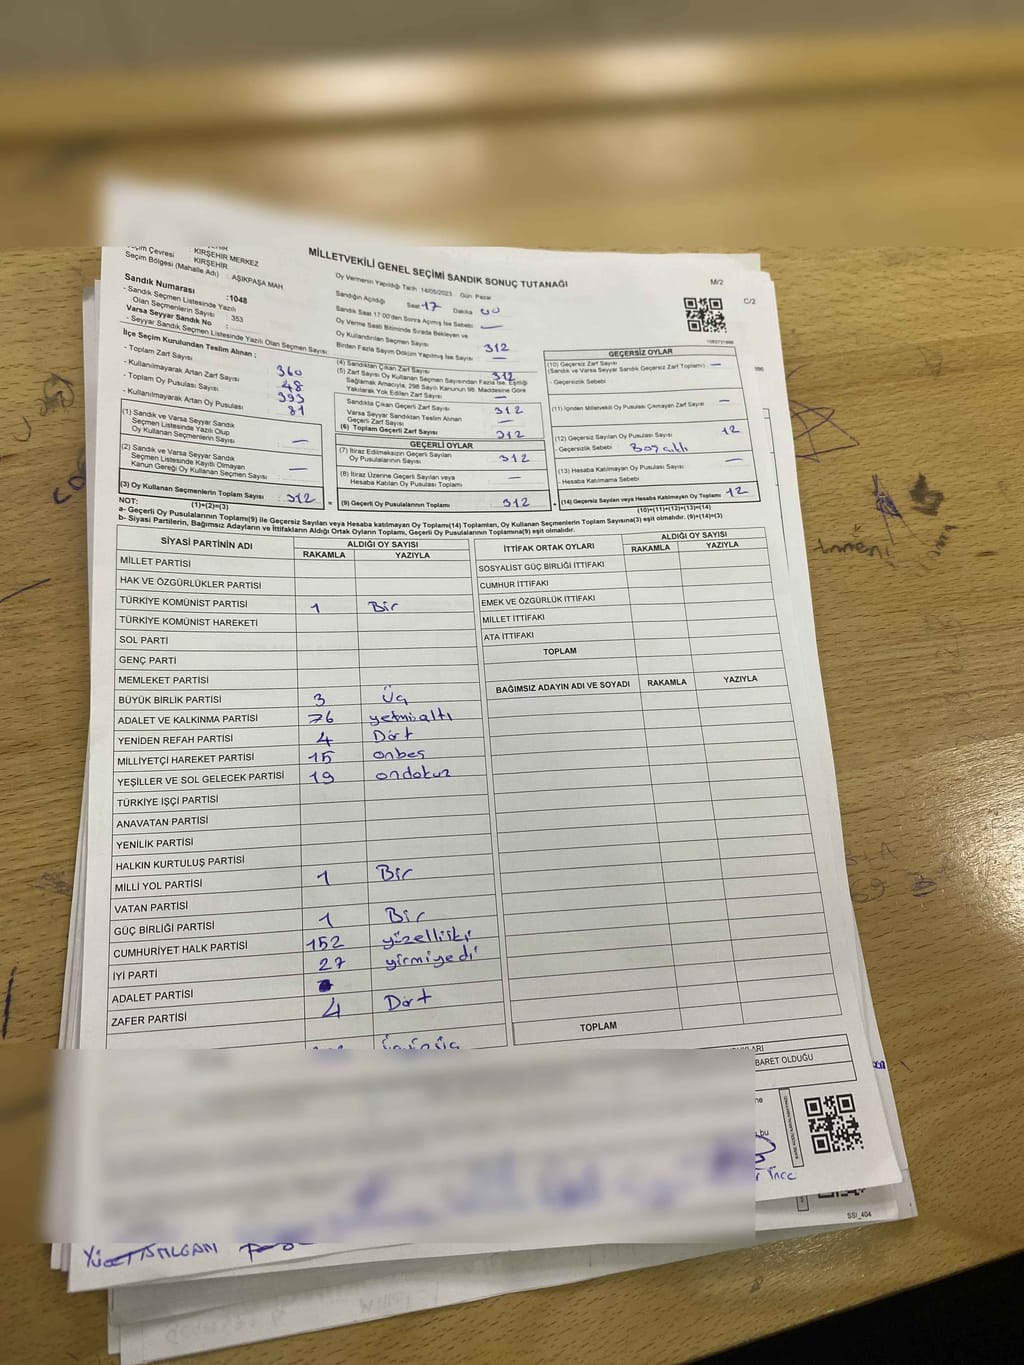 MİLLETVEKİLİ GENEL SEÇİMİ SANDIK SONUÇ TUTANAĞI
M/2
C/2
Seçim Çevresi : KIRŞEHİR MERKEZ
KIRŞEHİR
Seçim Bölgesi (Mahalle Adı) : AŞIKPAŞA MAH
Sandık Numarası :1048
- Sandık Seçmen Listesinde Yazılı
Olan Seçmenlerin Sayısı : 353
Varsa Seyyar Sandık No :
- Seyyar Sandık Seçmen Listesinde Yazılı Olan Seçmen Sayısı:
Oy Vermenin Yapıldığı Tarih 14/05/2023 Gün Pazar
Sandığın Açıldığı Saat 17 Dakika 00
Sandık Saat 17:00'den Sonra Açılmış İse Sebebi —
Oy Verme Saati Bitiminde Sırada Bekleyen ve
Oy Kullandırılan Seçmen Sayısı
312
Birden Fazla Sayım Döküm Yapılmış İse Sayısı : —
İlçe Seçim Kurulundan Teslim Alınan ;
- Toplam Zarf Sayısı : 360
- Kullanılmayarak Artan Zarf Sayısı : 48
- Toplam Oy Pusulası Sayısı : 393
- Kullanılmayarak Artan Oy Pusulası : 81
(1) Sandık ve Varsa Seyyar Sandık
Seçmen Listesinde Yazılı Olup
Oy Kullanan Seçmenlerin Sayısı : —
(2) Sandık ve Varsa Seyyar Sandık
Seçmen Listesinde Kayıtlı Olmayan
Kanun Gereği Oy Kullanan Seçmen Sayısı : —
(3) Oy Kullanan Seçmenlerin Toplam Sayısı : 312
(1)+(2)=(3)
(4) Sandıktan Çıkan Zarf Sayısı : 312
(5) Zarf Sayısı Oy Kullanan Seçmen Sayısından Fazla İse, Eşitliği
Sağlamak Amacıyla, 298 Sayılı Kanunun 98. Maddesine Göre
Yakılarak Yok Edilen Zarf Sayısı : —
Sandıkta Çıkan Geçerli Zarf Sayısı : 312
Varsa Seyyar Sandıktan Teslim Alınan
Geçerli Zarf Sayısı : —
(6) Toplam Geçerli Zarf Sayısı : 312
GEÇERLİ OYLAR
(7) İtiraz Edilmeksizin Geçerli Sayılan
Oy Pusulalarının Sayısı : 312
(8) İtiraz Üzerine Geçerli Sayılan veya
Hesaba Katılan Oy Pusulası Toplamı : —
= (9) Geçerli Oy Pusulalarının Toplamı : 312
GEÇERSİZ OYLAR
(10) Geçersiz Zarf Sayısı
(Sandık ve Varsa Seyyar Sandık Geçersiz Zarf Toplamı) : —
- Geçersizlik Sebebi
(11) İçinden Milletvekili Oy Pusulası Çıkmayan Zarf Sayısı : —
(12) Geçersiz Sayılan Oy Pusulası Sayısı : 12
- Geçersizlik Sebebi :
(13) Hesaba Katılmayan Oy Pusulası Sayısı : —
- Hesaba Katılmama Sebebi :
+ (14) Geçersiz Sayılan veya Hesaba Katılmayan Oy Toplamı : 12
(10)+(11)+(12)+(13)=(14)
NOT:
a- Geçerli Oy Pusulalarının Toplamı(9) ile Geçersiz Sayılan veya Hesaba katılmayan Oy Toplamı(14) Toplamları, Oy Kullanan Seçmenlerin Toplam Sayısına(3) eşit olmalıdır. (9)+(14)=(3)
b- Siyasi Partilerin, Bağımsız Adayların ve İttifakların Aldığı Ortak Oyların Toplamı, Geçerli Oy Pusulalarının Toplamına(9) eşit olmalıdır.
SİYASİ PARTİNİN ADI ALDIĞI OY SAYISI
RAKAMLA YAZIYLA
MİLLET PARTİSİ
HAK VE ÖZGÜRLÜKLER PARTİSİ
TÜRKİYE KOMÜNİST PARTİSİ 1 Bir
TÜRKİYE KOMÜNİST HAREKETİ
SOL PARTİ
GENÇ PARTİ
MEMLEKET PARTİSİ
BÜYÜK BİRLİK PARTİSİ 3 Üç
ADALET VE KALKINMA PARTİSİ 76 yetmişaltı
YENİDEN REFAH PARTİSİ 4 Dört
MİLLİYETÇİ HAREKET PARTİSİ 15 onbeş
YEŞİLLER VE SOL GELECEK PARTİSİ 19 ondokuz
TÜRKİYE İŞÇİ PARTİSİ
ANAVATAN PARTİSİ
YENİLİK PARTİSİ
HALKIN KURTULUŞ PARTİSİ
MİLLİ YOL PARTİSİ 1 Bir
VATAN PARTİSİ
GÜÇ BİRLİĞİ PARTİSİ 1 Bir
CUMHURİYET HALK PARTİSİ 152 yüzelliiki
İYİ PARTİ 27 yirmiyedi
ADALET PARTİSİ
ZAFER PARTİSİ 4 Dört
İTTİFAK ORTAK OYLARI ALDIĞI OY SAYISI
RAKAMLA YAZIYLA
SOSYALİST GÜÇ BİRLİĞİ İTTİFAKI
CUMHUR İTTİFAKI
EMEK VE ÖZGÜRLÜK İTTİFAKI
MİLLET İTTİFAKI
ATA İTTİFAKI
TOPLAM
BAĞIMSIZ ADAYIN ADI VE SOYADI RAKAMLA YAZIYLA
TOPLAM
BARET OLDUĞU
İnce
SSI_404